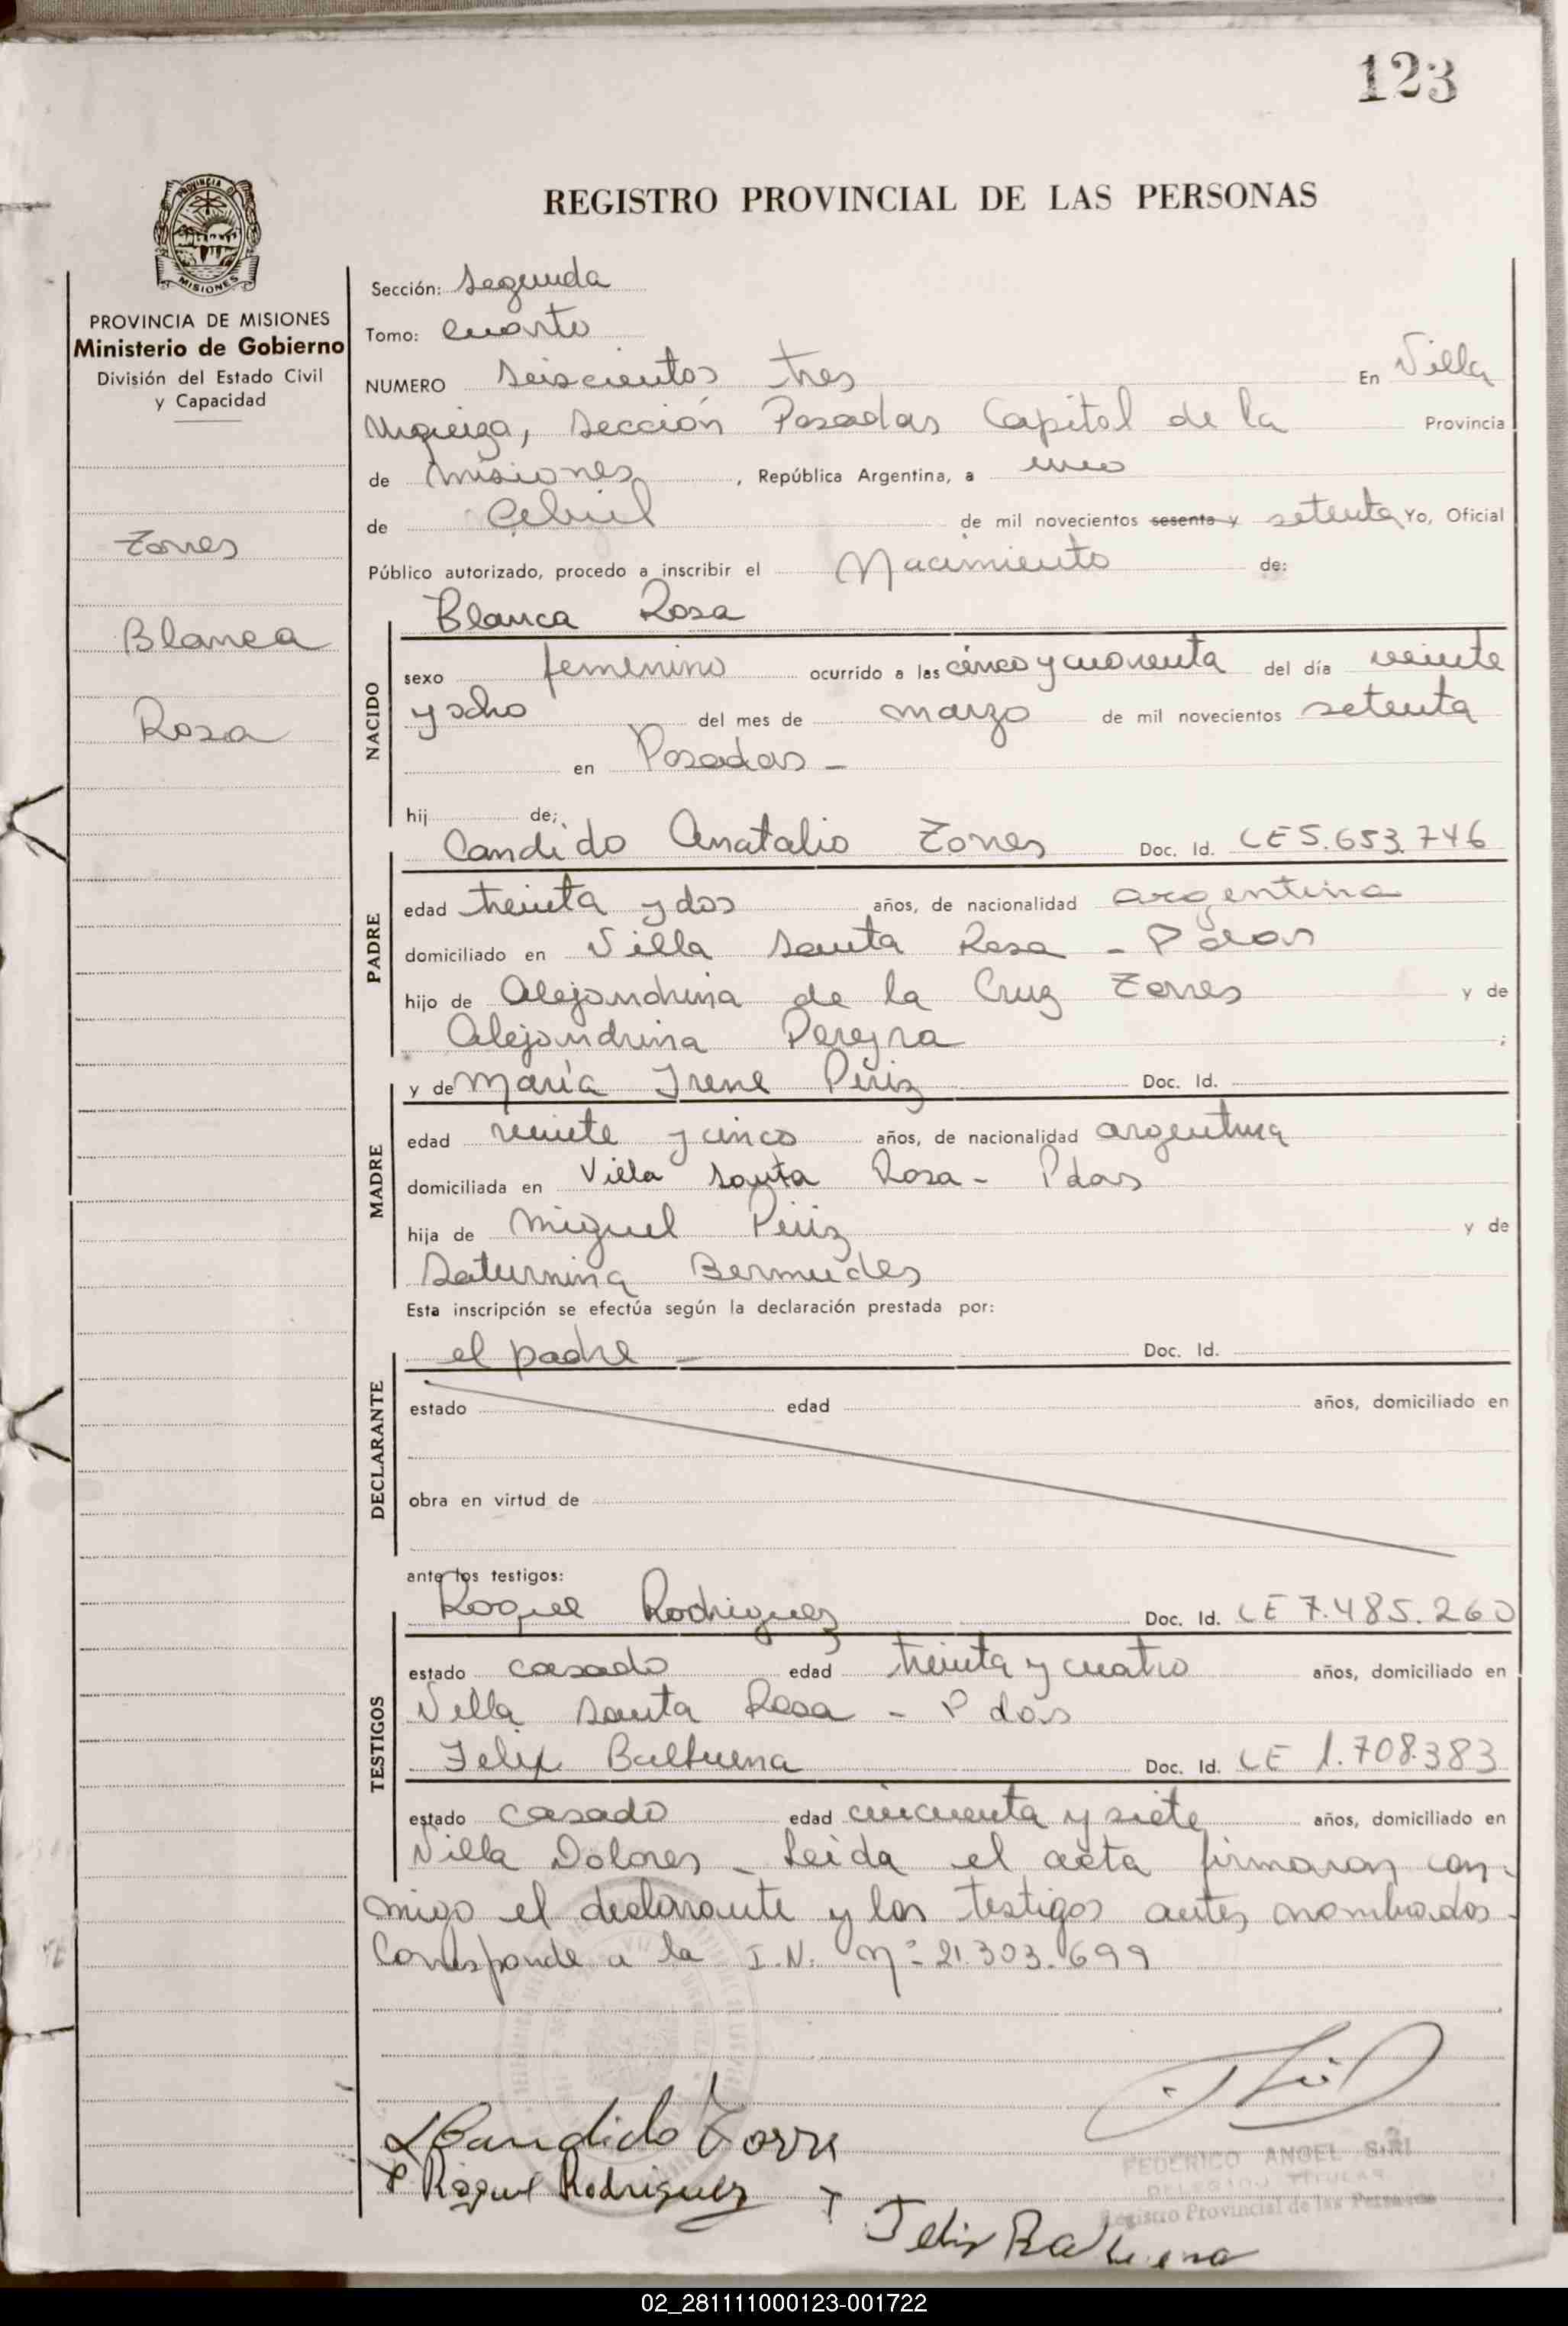 123
REGISTRO PROVINCIAL DE LAS PERSONAS
PROVINCIA DE
MISIONES
PROVINCIA DE MISIONES
Ministerio de Gobierno
División del Estado Civil
y Capacidad
Torres
Blanca
Rosa
Sección: Segunda
Tomo: Cuarto
NUMERO Seiscientos tres En Villa
Urquiza, Sección Posadas Capital de la Provincia
de Misiones, República Argentina, a uno
de Abril de mil novecientos sesenta y setenta Yo, Oficial
Público autorizado, procedo a inscribir el Nacimiento de:
Blanca Rosa
NACIDO
sexo femenino ocurrido a las cinco y cuarenta del día veinte
y ocho del mes de marzo de mil novecientos setenta
en Posadas -
hij de:
Candido Anatalio Torres Doc. Id. CE 5.653.746
PADRE
edad treinta y dos años, de nacionalidad argentina
domiciliado en Villa Santa Rosa - Pdas
hijo de Alejandrina de la Cruz Torres y de
Alejandrina Pereyra ;
y de María Irene Piriz Doc. Id.
MADRE
edad veinte y cinco años, de nacionalidad argentina
domiciliada en Villa Santa Rosa - Pdas
hija de Miguel Piriz y de
Saturnina Bermudes
Esta inscripción se efectúa según la declaración prestada por:
el padre - Doc. Id.
DECLARANTE
estado edad años, domiciliado en
obra en virtud de
ante los testigos:
Roque Rodriguez Doc. Id. CE 7.485.260
TESTIGOS
estado casado edad treinta y cuatro años, domiciliado en
Villa Santa Rosa - Pdas
Felix Balbuena Doc. Id. CE 1.708.383
estado casado edad cincuenta y siete años, domiciliado en
Villa Dolores - Leida el acta firmaron con-
migo el declarante y los testigos antes nombrados.
Corresponde a la I.N. Nº 21.303.699
Candido Torre
Roque Rodriguez
Felix Balbuena
FEDERICO ANGEL
DELEGADO TITULAR
Registro Provincial de las Personas
02_281111000123-001722